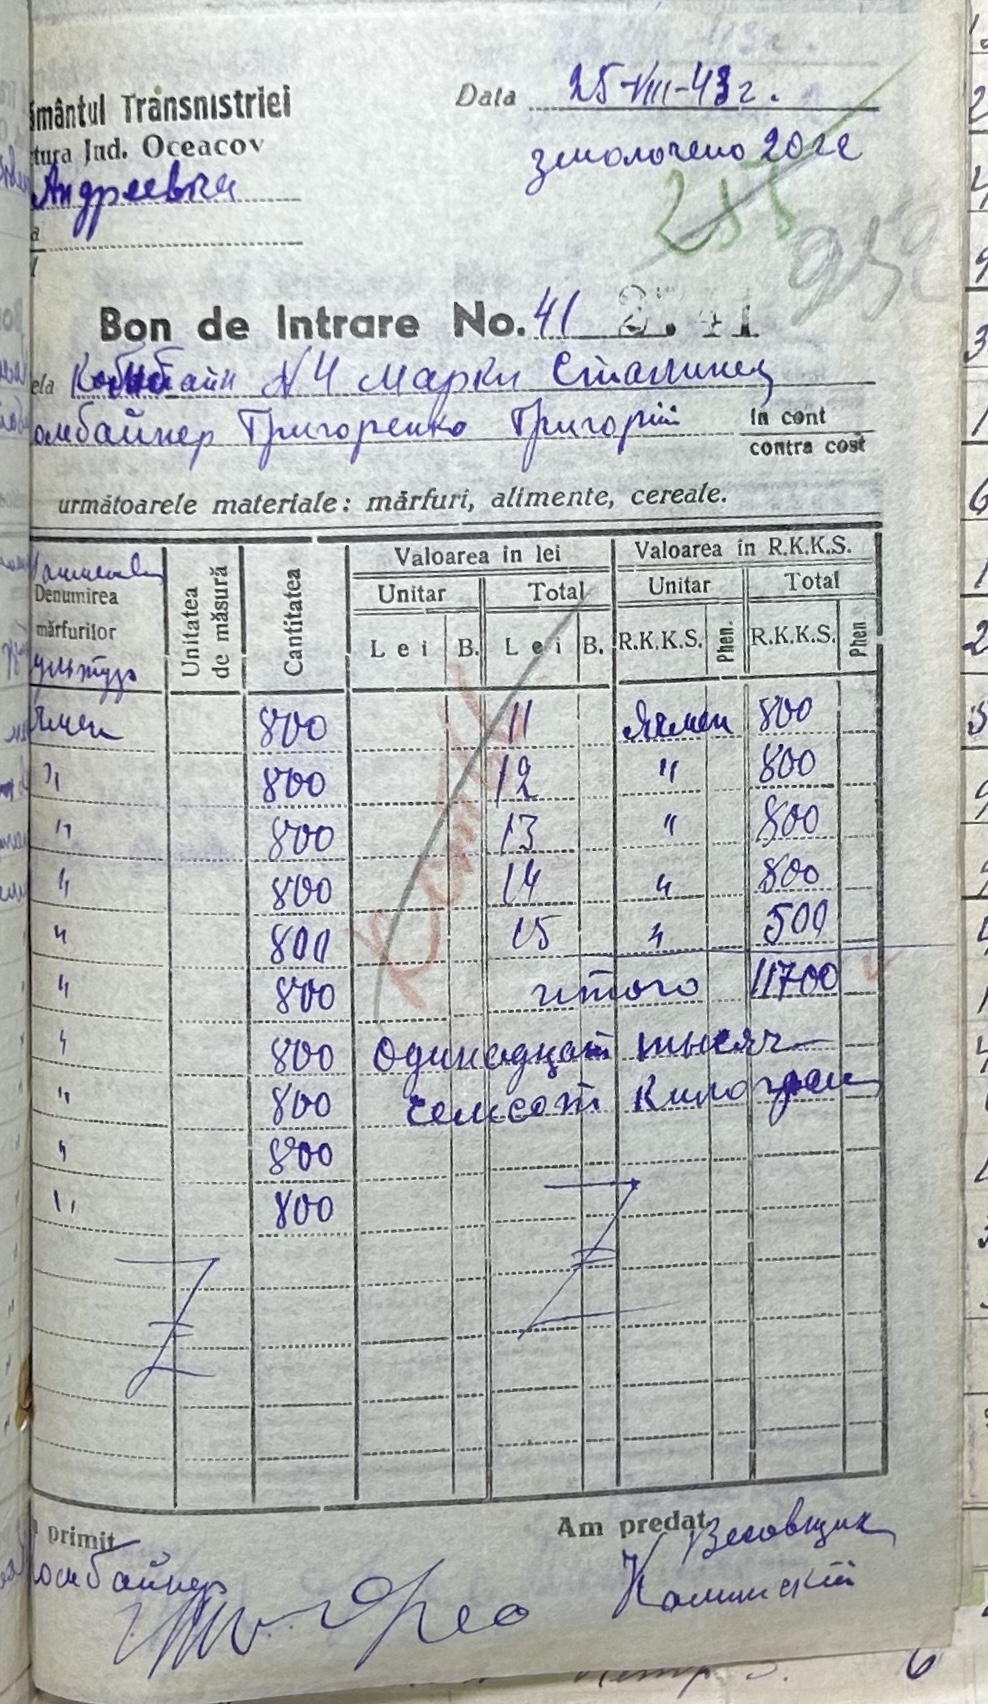 ământul Transnistriei
Data 25-VIII-43г.
tura Jud. Oceacov
змолочено 20 га
Андреевка
255
Bon de Intrare No. 41
ela Комбайн N4 марки Сталинец
омбайнер Григоренко Григорій
in cont
contra cost
următoarele materiale: mărfuri, alimente, cereale.
Denumirea mărfurilor
Unitatea de măsură
Cantitatea
Valoarea in lei
Valoarea in R.K.K.S.
Unitar Total Unitar Total
Lei B. Lei B. R.K.K.S. Phen. R.K.K.S. Phen
культур
Ячмен 800 11 Ячмен 800
" 800 12 " 800
" 800 13 " 800
" 800 14 " 800
" 800 15 " 500
" 800 итого 11700
" 800 одинадцат тысяч
" 800 семсот килограм
" 800
" 800
primit
Am predat
Весовщик
Комбайнер
Каминскій